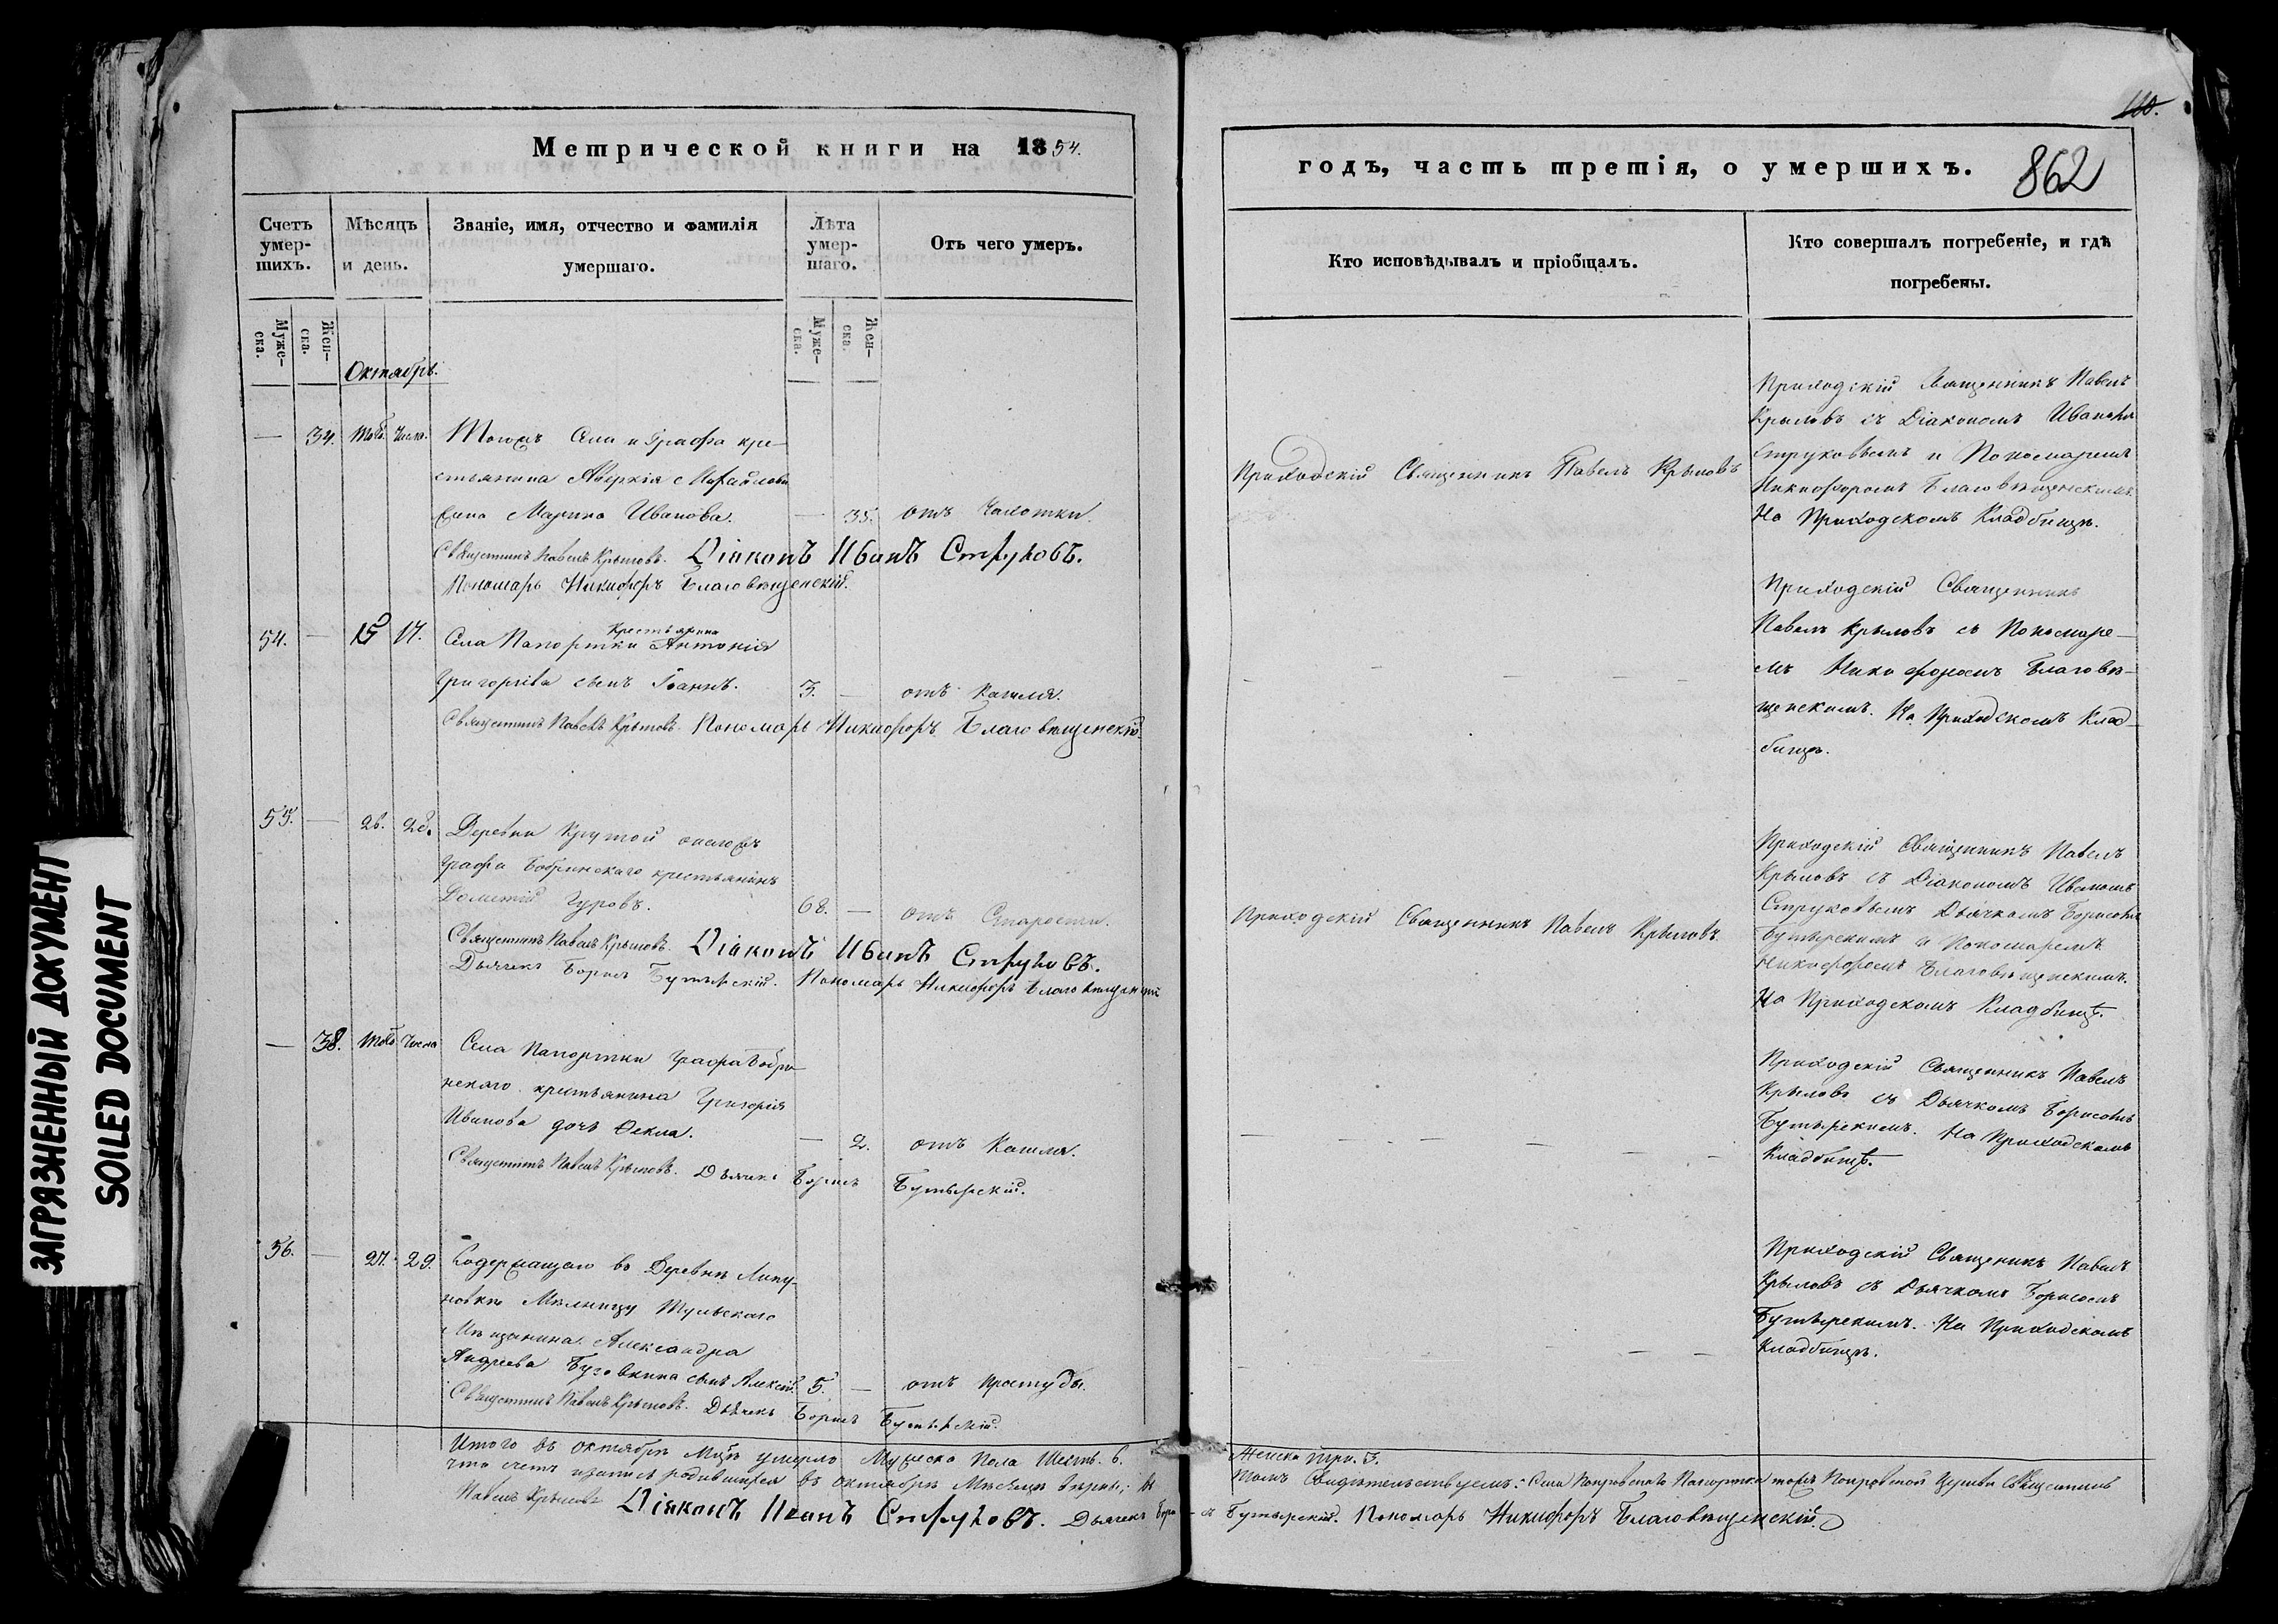 ЗАГРЯЗНЕННЫЙ ДОКУМЕНТ
SOILED DOCUMENT
Метрической книги на 1854.
Счетъ умер-шихъ.
Мѣсяцъ и день.
Званіе, имя, отчество и фамилія
умершаго.
Лѣта умер-шаго.
Отъ чего умеръ.
Муже-ска.
Жен-ска.
Муже-ска.
Жен-ска.
Октябрь.
— 34. Того Числа. Тогожъ Села и Графа кре-
стьянина Аверкія Михайлова
жена Марина Иванова. — 35. отъ Чахотки.
Священникъ Павелъ Крыловъ. Діаконъ Иванъ Струковъ.
Пономарь Никифоръ Благовѣщенскій.
54. — 15 17. Села Папортки Крестьянина Антонія
Григорьева сынъ Іоаннъ. 3. — отъ Кашля.
Священникъ Павелъ Крыловъ. Пономарь Никифоръ Благовѣщенскій.
55. — 26. 28. Деревни Крутой
Графа Бобринскаго крестьянинъ
Дометій Гуровъ. 68. — отъ Старости.
Священникъ Павелъ Крыловъ. Діаконъ Иванъ Струковъ.
Дьячекъ Борисъ Бутырскій. Пономарь Никифоръ Благовѣщенскій
— 38. Того Числа Села Папортки Графа Бобри-
нскаго крестьянина Григорія
Иванова дочь Фекла. — 2. отъ Кашля.
Священникъ Павелъ Крыловъ. Дьячекъ Борисъ Бутырскій.
56. — 27. 29. Содержащаго въ Деревнѣ
Мельницу Тульскаго
Мѣщанина Александра
Андреева сынъ Алексій. 5. — отъ Простуды.
Священникъ Павелъ Крыловъ. Дьячекъ Борисъ Бутырскій.
Итого въ октябрѣ Мцѣ умерло Мужеска Пола Шесть. 6.
что счетъ и запись родившихся въ октябрѣ Мѣсяцѣ вѣрны, въ
Павелъ Крыловъ Діаконъ Иванъ Струковъ. Дьячекъ Бори-
100.
годъ, часть третія, о умершихъ.
862
Кто исповѣдывалъ и пріобщалъ.
Кто совершалъ погребеніе, и гдѣ
погребены.
Приходскій Священникъ Павелъ
Крыловъ съ Діакономъ Иваномъ
Струковымъ и Пономаремъ
Никифоромъ Благовѣщенскимъ.
На Приходскомъ Кладбищѣ.
Приходскій Священникъ Павелъ Крыловъ
Приходскій Священникъ
Павелъ Крыловъ съ Пономаре-
мъ Никифоромъ Благовѣ-
щенскимъ. На Приходскомъ Клад-
бищѣ.
Приходскій Священникъ Павелъ
Крыловъ съ Діакономъ Иваномъ
Струковымъ Дьячкомъ Борисомъ
Бутырскимъ и Пономаремъ
Никифоромъ Благовѣщенскимъ.
На Приходскомъ Кладбищѣ.
Приходскій Священникъ Павелъ Крыловъ
Приходскій Священникъ Павелъ
Крыловъ съ Дьячкомъ Борисомъ
Бутырскимъ. На Приходскомъ
Кладбищѣ.
Приходскій Священникъ Павелъ
Крыловъ съ Дьячкомъ Борисомъ
Бутырскимъ. На Приходскомъ
Кладбищѣ.
Женска три. 3.
томъ Свидѣтельствуемъ: Села Покровской Церкви Священникъ
съ Бутырскій. Пономарь Никифоръ Благовѣщенскій.